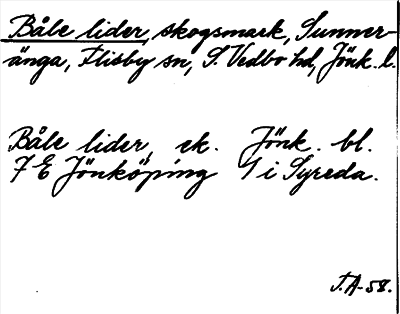 Båle lider, skogsmark, Sunner-
änga, Flisby sn, S. Vedbo hd, Jönk. l.
Båle lider, ek. Jönk. bl.
7 E Jönköping 1 i Syreda.
J.A-58.